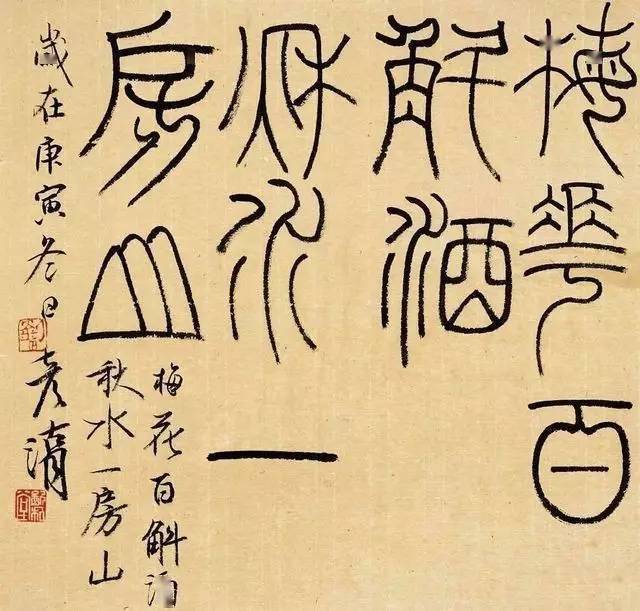 梅華百
斛酒
秋水一
房山
梅花百斛酒
秋水一房山
歲在庚寅冬日
彦清